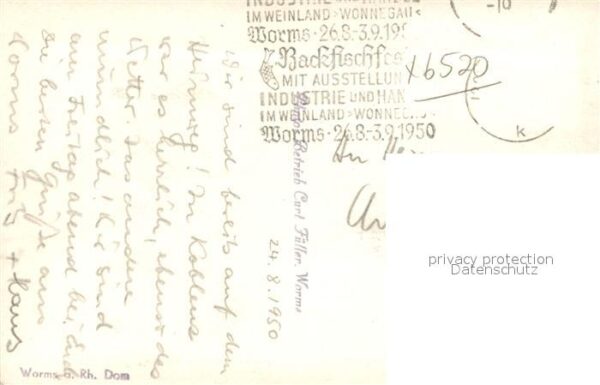 INDUSTRIE UND HANDEL
IM WEINLAND>WONNEGAU<
Worms · 26.8-3.9.195
Backfischfes
MIT AUSSTELLUN
INDUSTRIE UND HAN
IM WEINLAND>WONNEG
Worms · 26.8-3.9.1950
-10
k
X6520
An
24.8.1950
Wir sind bereits auf dem
Heimweg! In Koblenz
war es herrlich, ebenso das
Wetter. Das andere
mündlich! Wir sind
am Freitag abend bei Euch
Die besten Grüße aus
Worms
Fritz + Hans
Betrieb Curt Füller, Worms
Worms a. Rh. Dom
privacy protection
Datenschutz